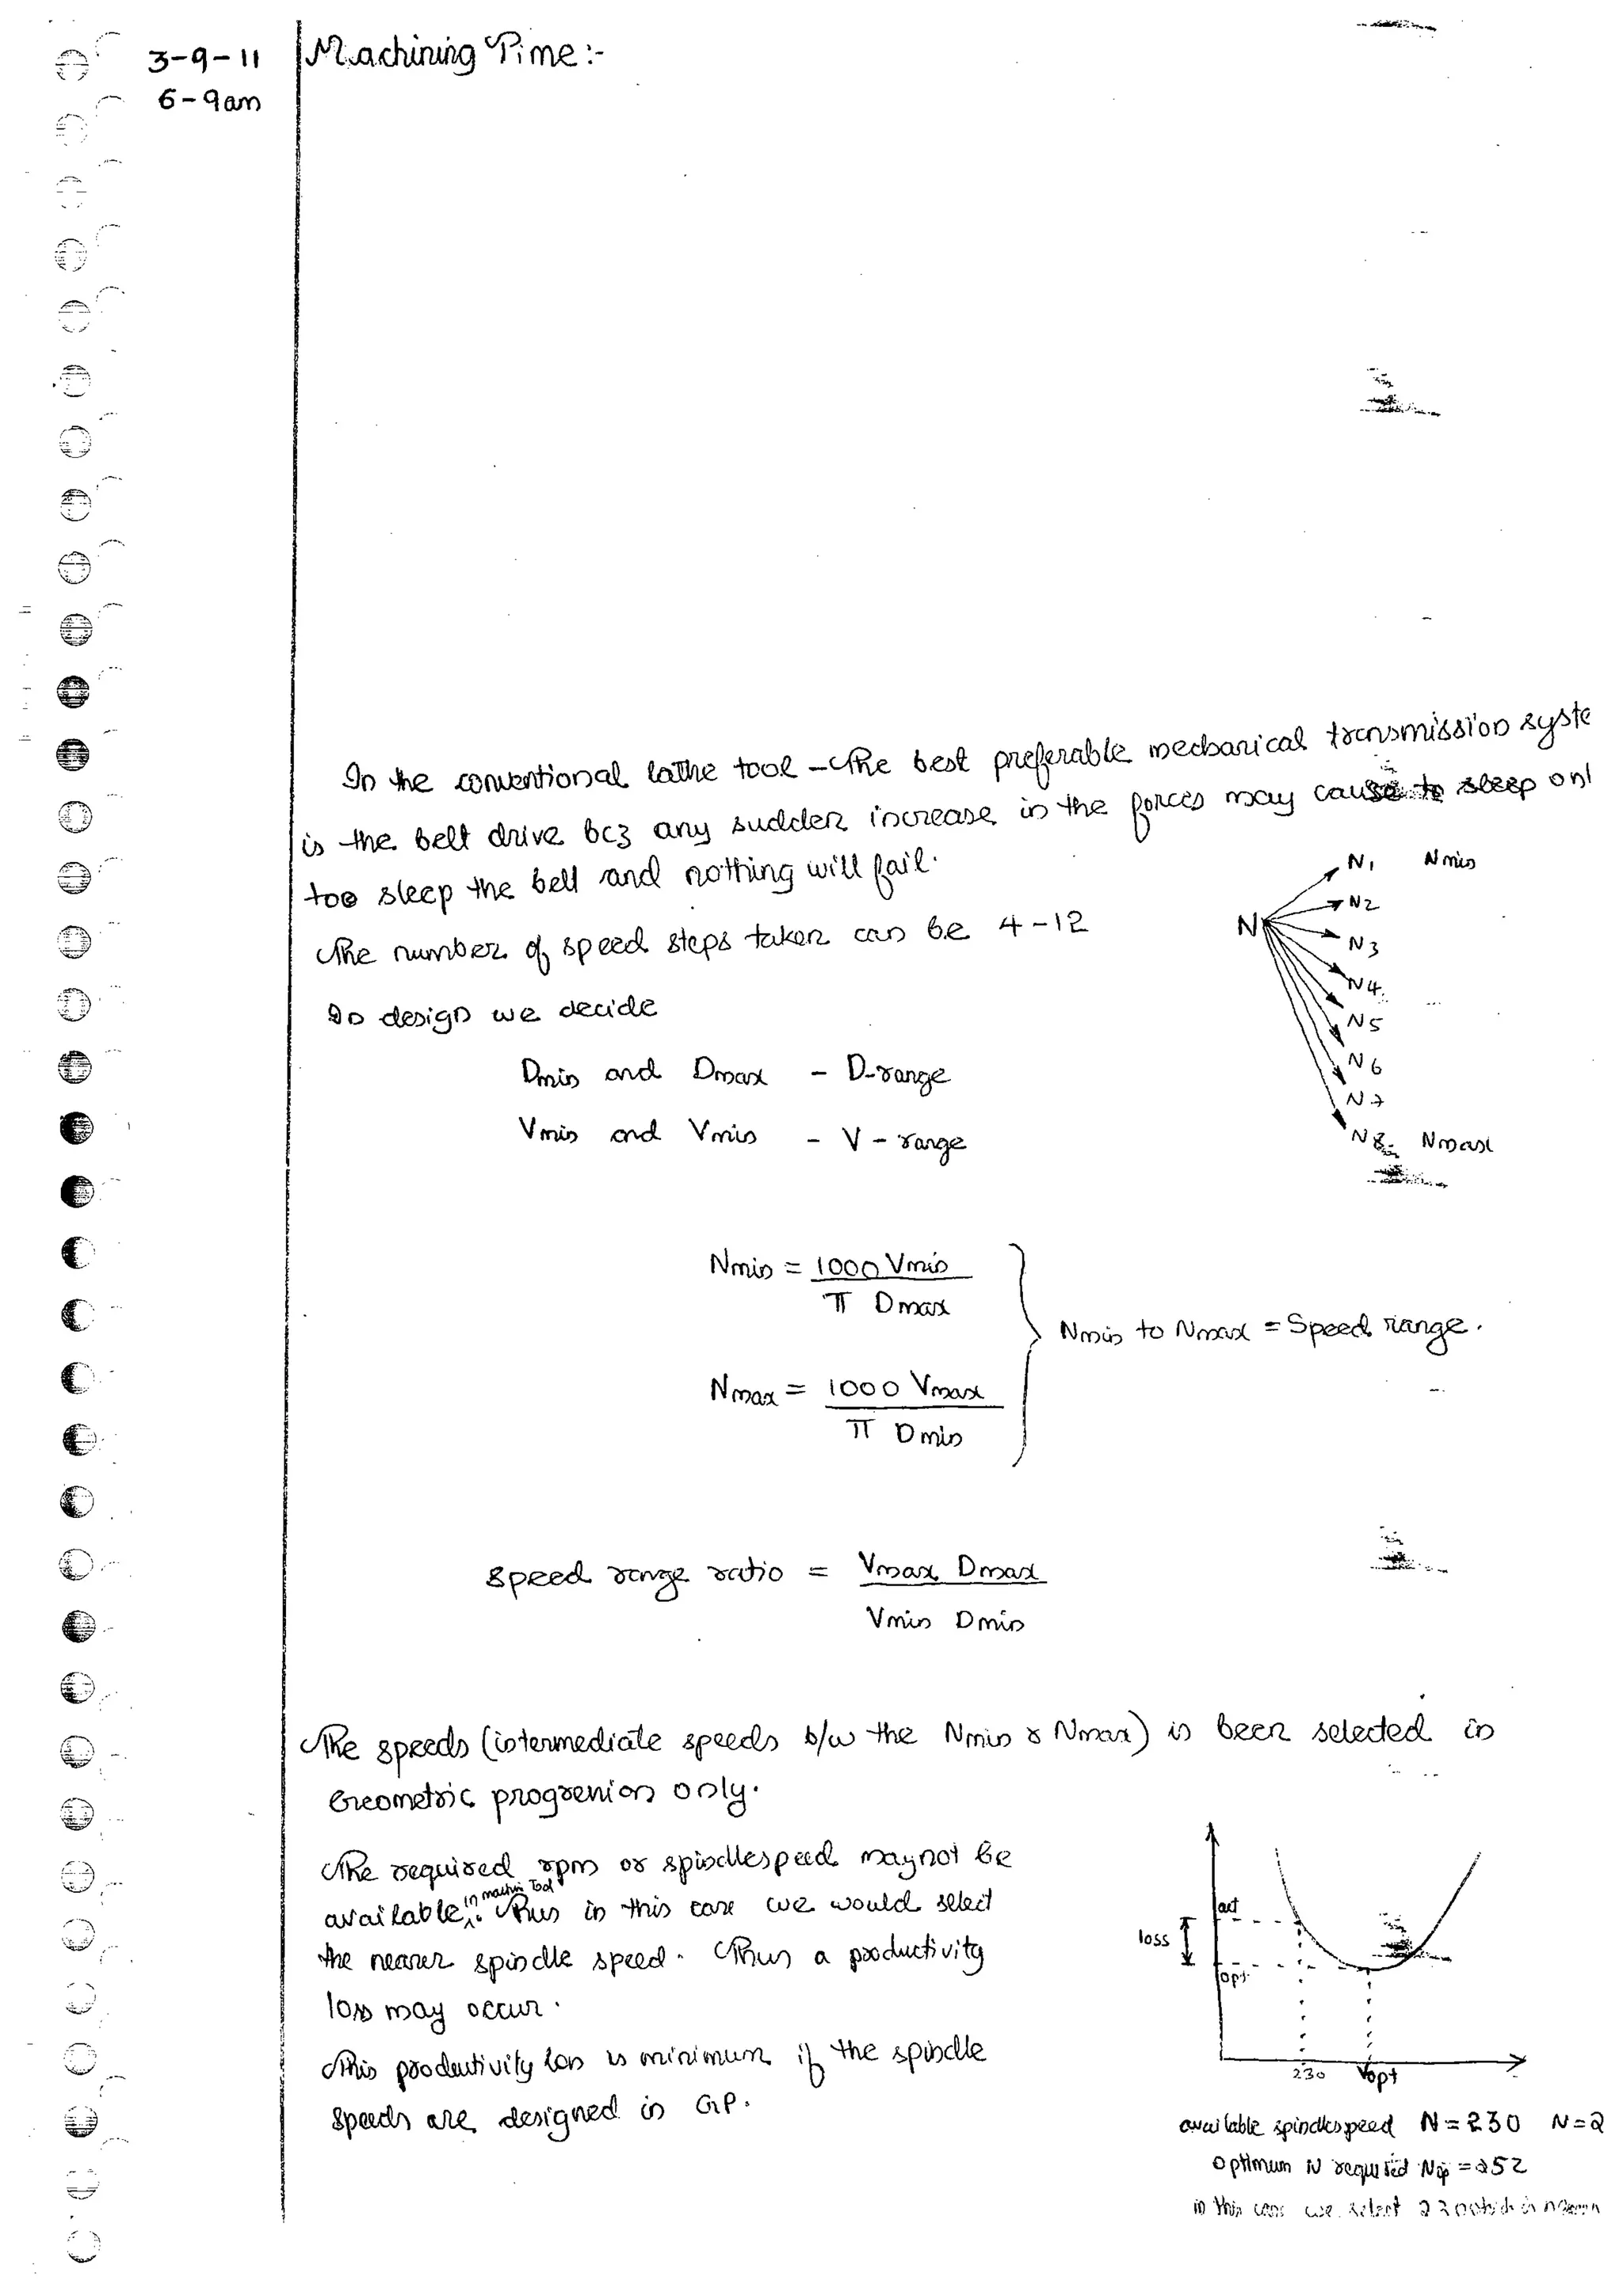 3-9-11
6-9am
Machining Time:-
In the conventional lathe tool - The best preferable mechanical transmission syste
is the belt drive bcz any sudden increase in the forces may cause to sleep onl
too sleep the bell and nothing will fail.
The number of speed steps taken can be 4-12
In design we decide
Dmin and Dmax - D-range
Vmin and Vmin - V-range
N
N1 Nmin
N2
N3
N4
N5
N6
N7
N8 Nmax
Nmin = 1000 Vmin
π Dmax
Nmin to Nmax = Speed range.
Nmax = 1000 Vmax
π Dmin
Speed range ratio = Vmax Dmax
Vmin Dmin
The speeds (intermediate speeds b/w the Nmin & Nmax) is been selected in
Geometric progression only.
The required rpm or spindlespeed maynot be
in machin Tool
available. Thus in this case we would select
the nearer spindle speed. Thus a productivity
loss may occur.
This productivity loss is minimum if the spindle
speeds are designed in G.P.
loss
act
opt
230 Vopt
available spindlespeed N = 230 N=2
Optimum N required Nop = 252
in this case we select 230 which is